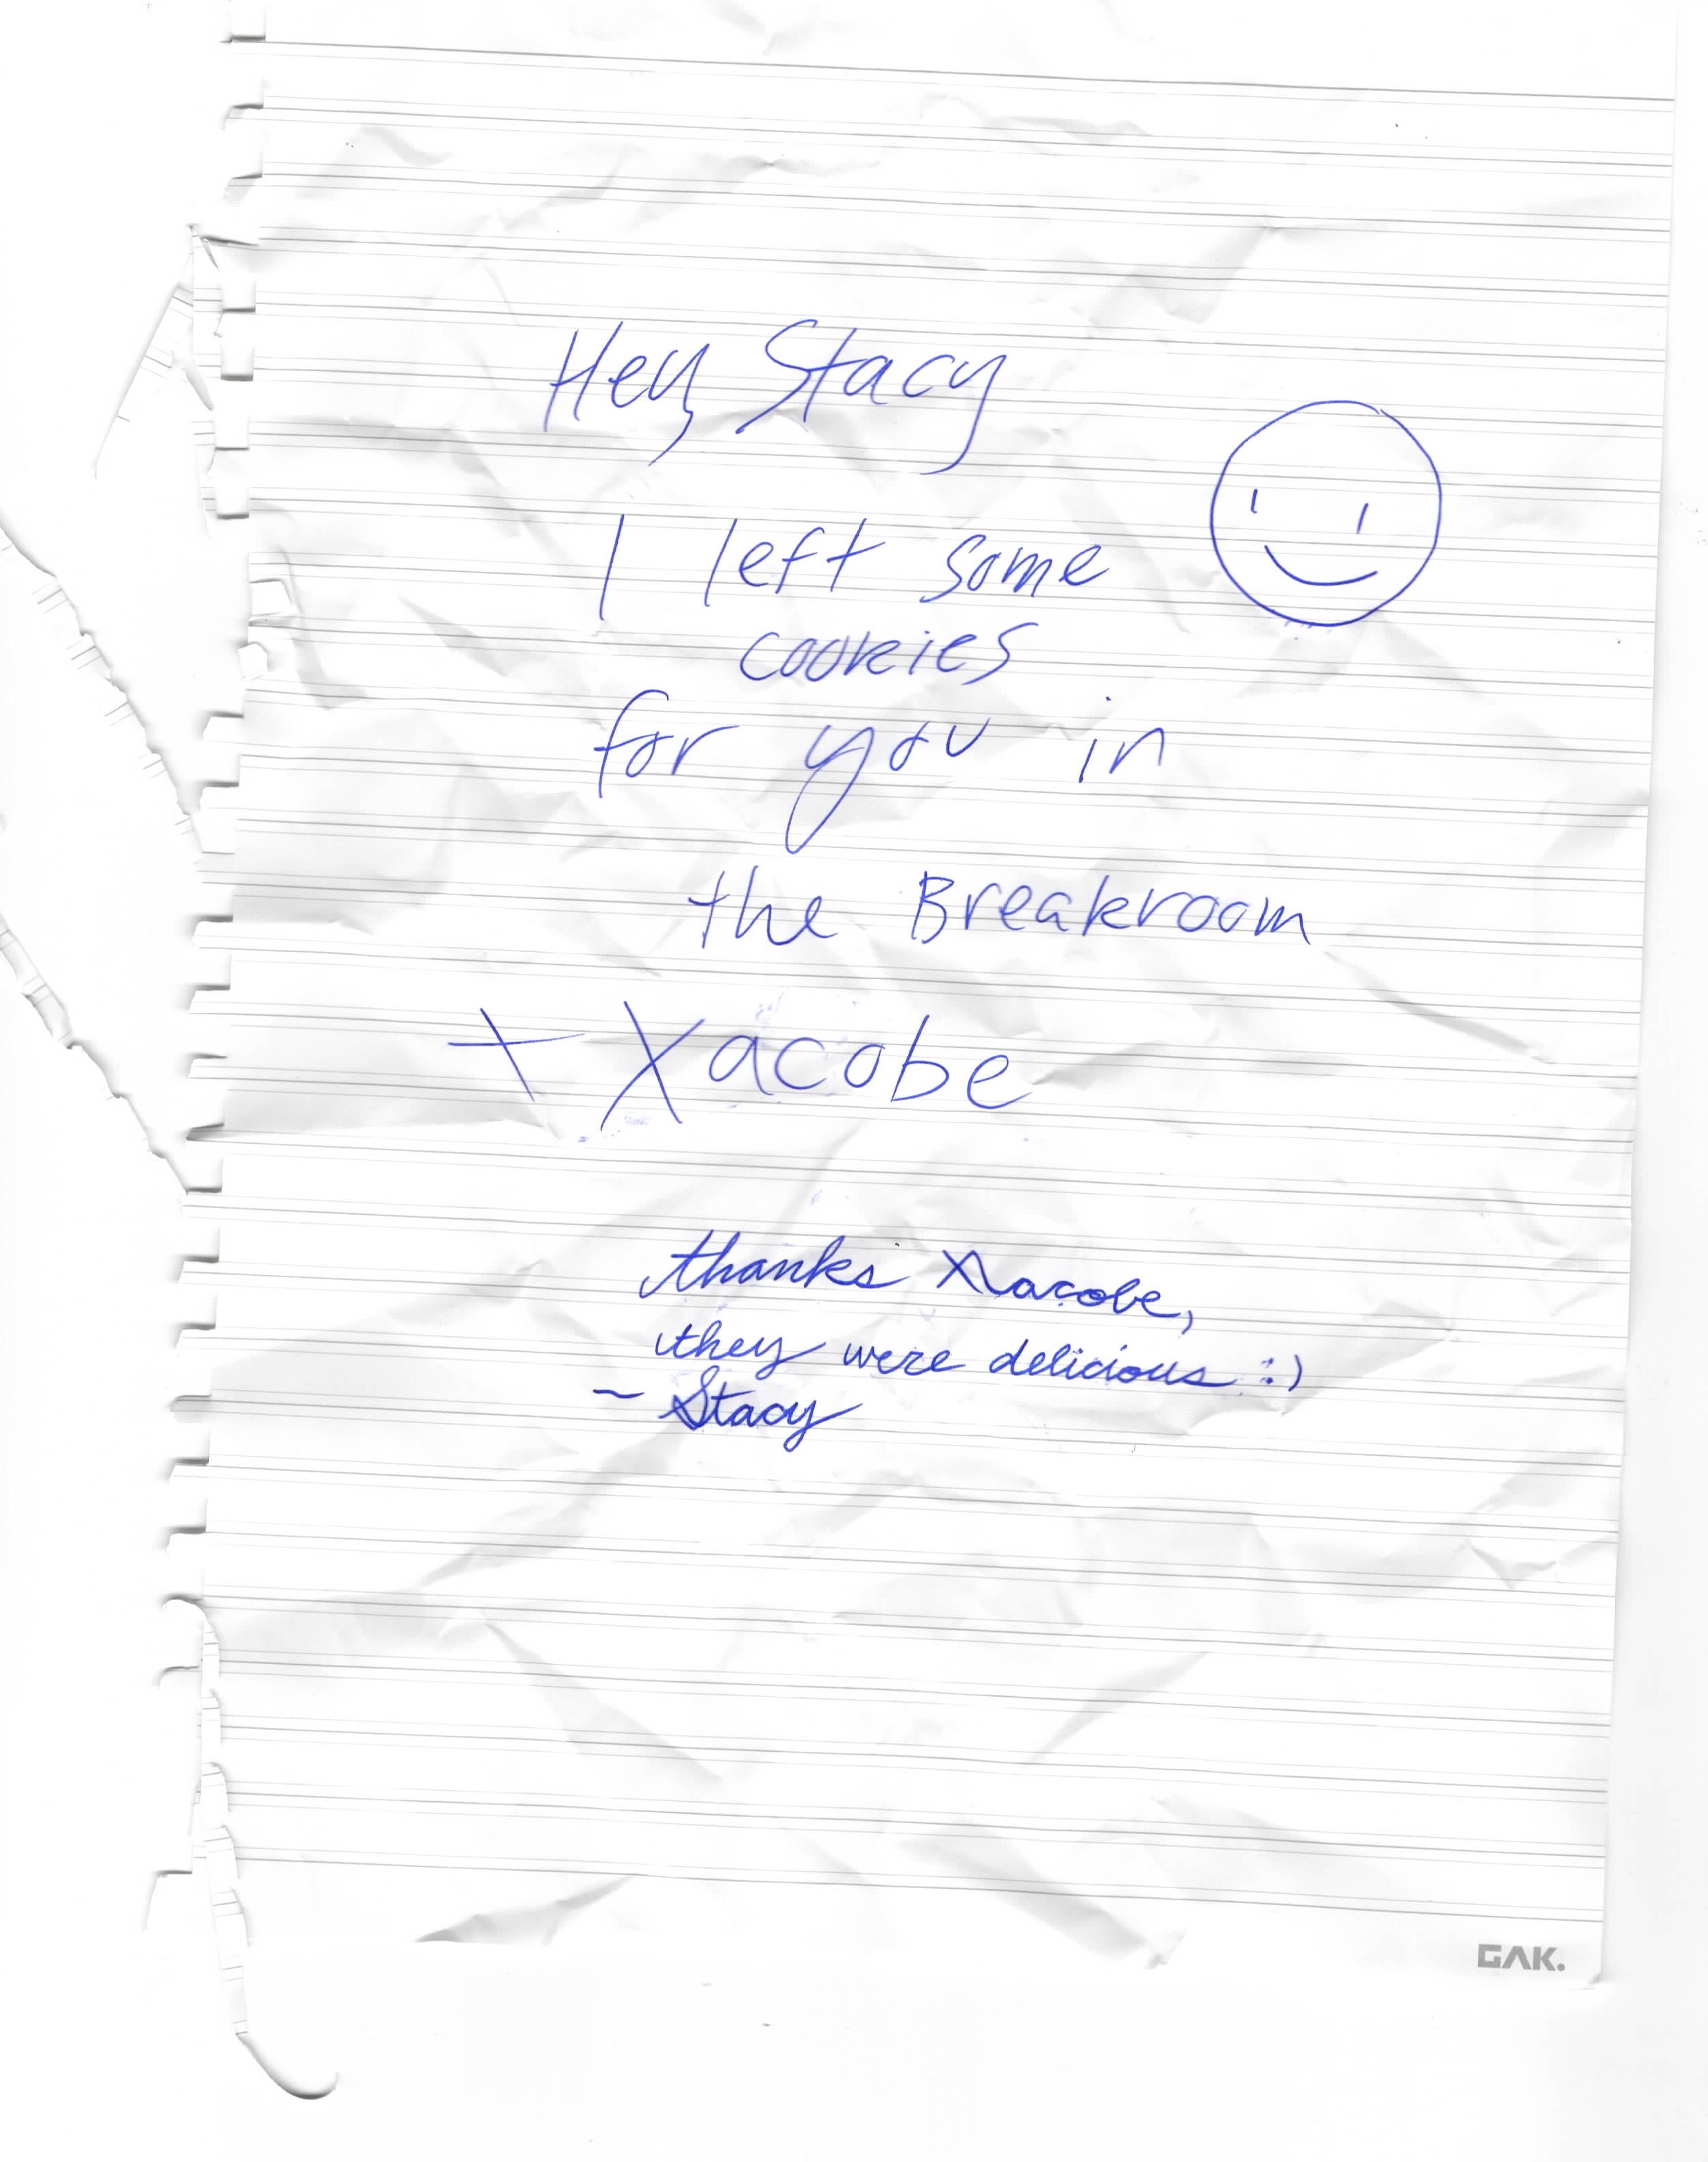 Hey, Stacy
I left some
cookies
for you in
the Breakroom
+ Xacobe
thanks Xacobe,
they were delicious :)
~ Stacy
GAK.